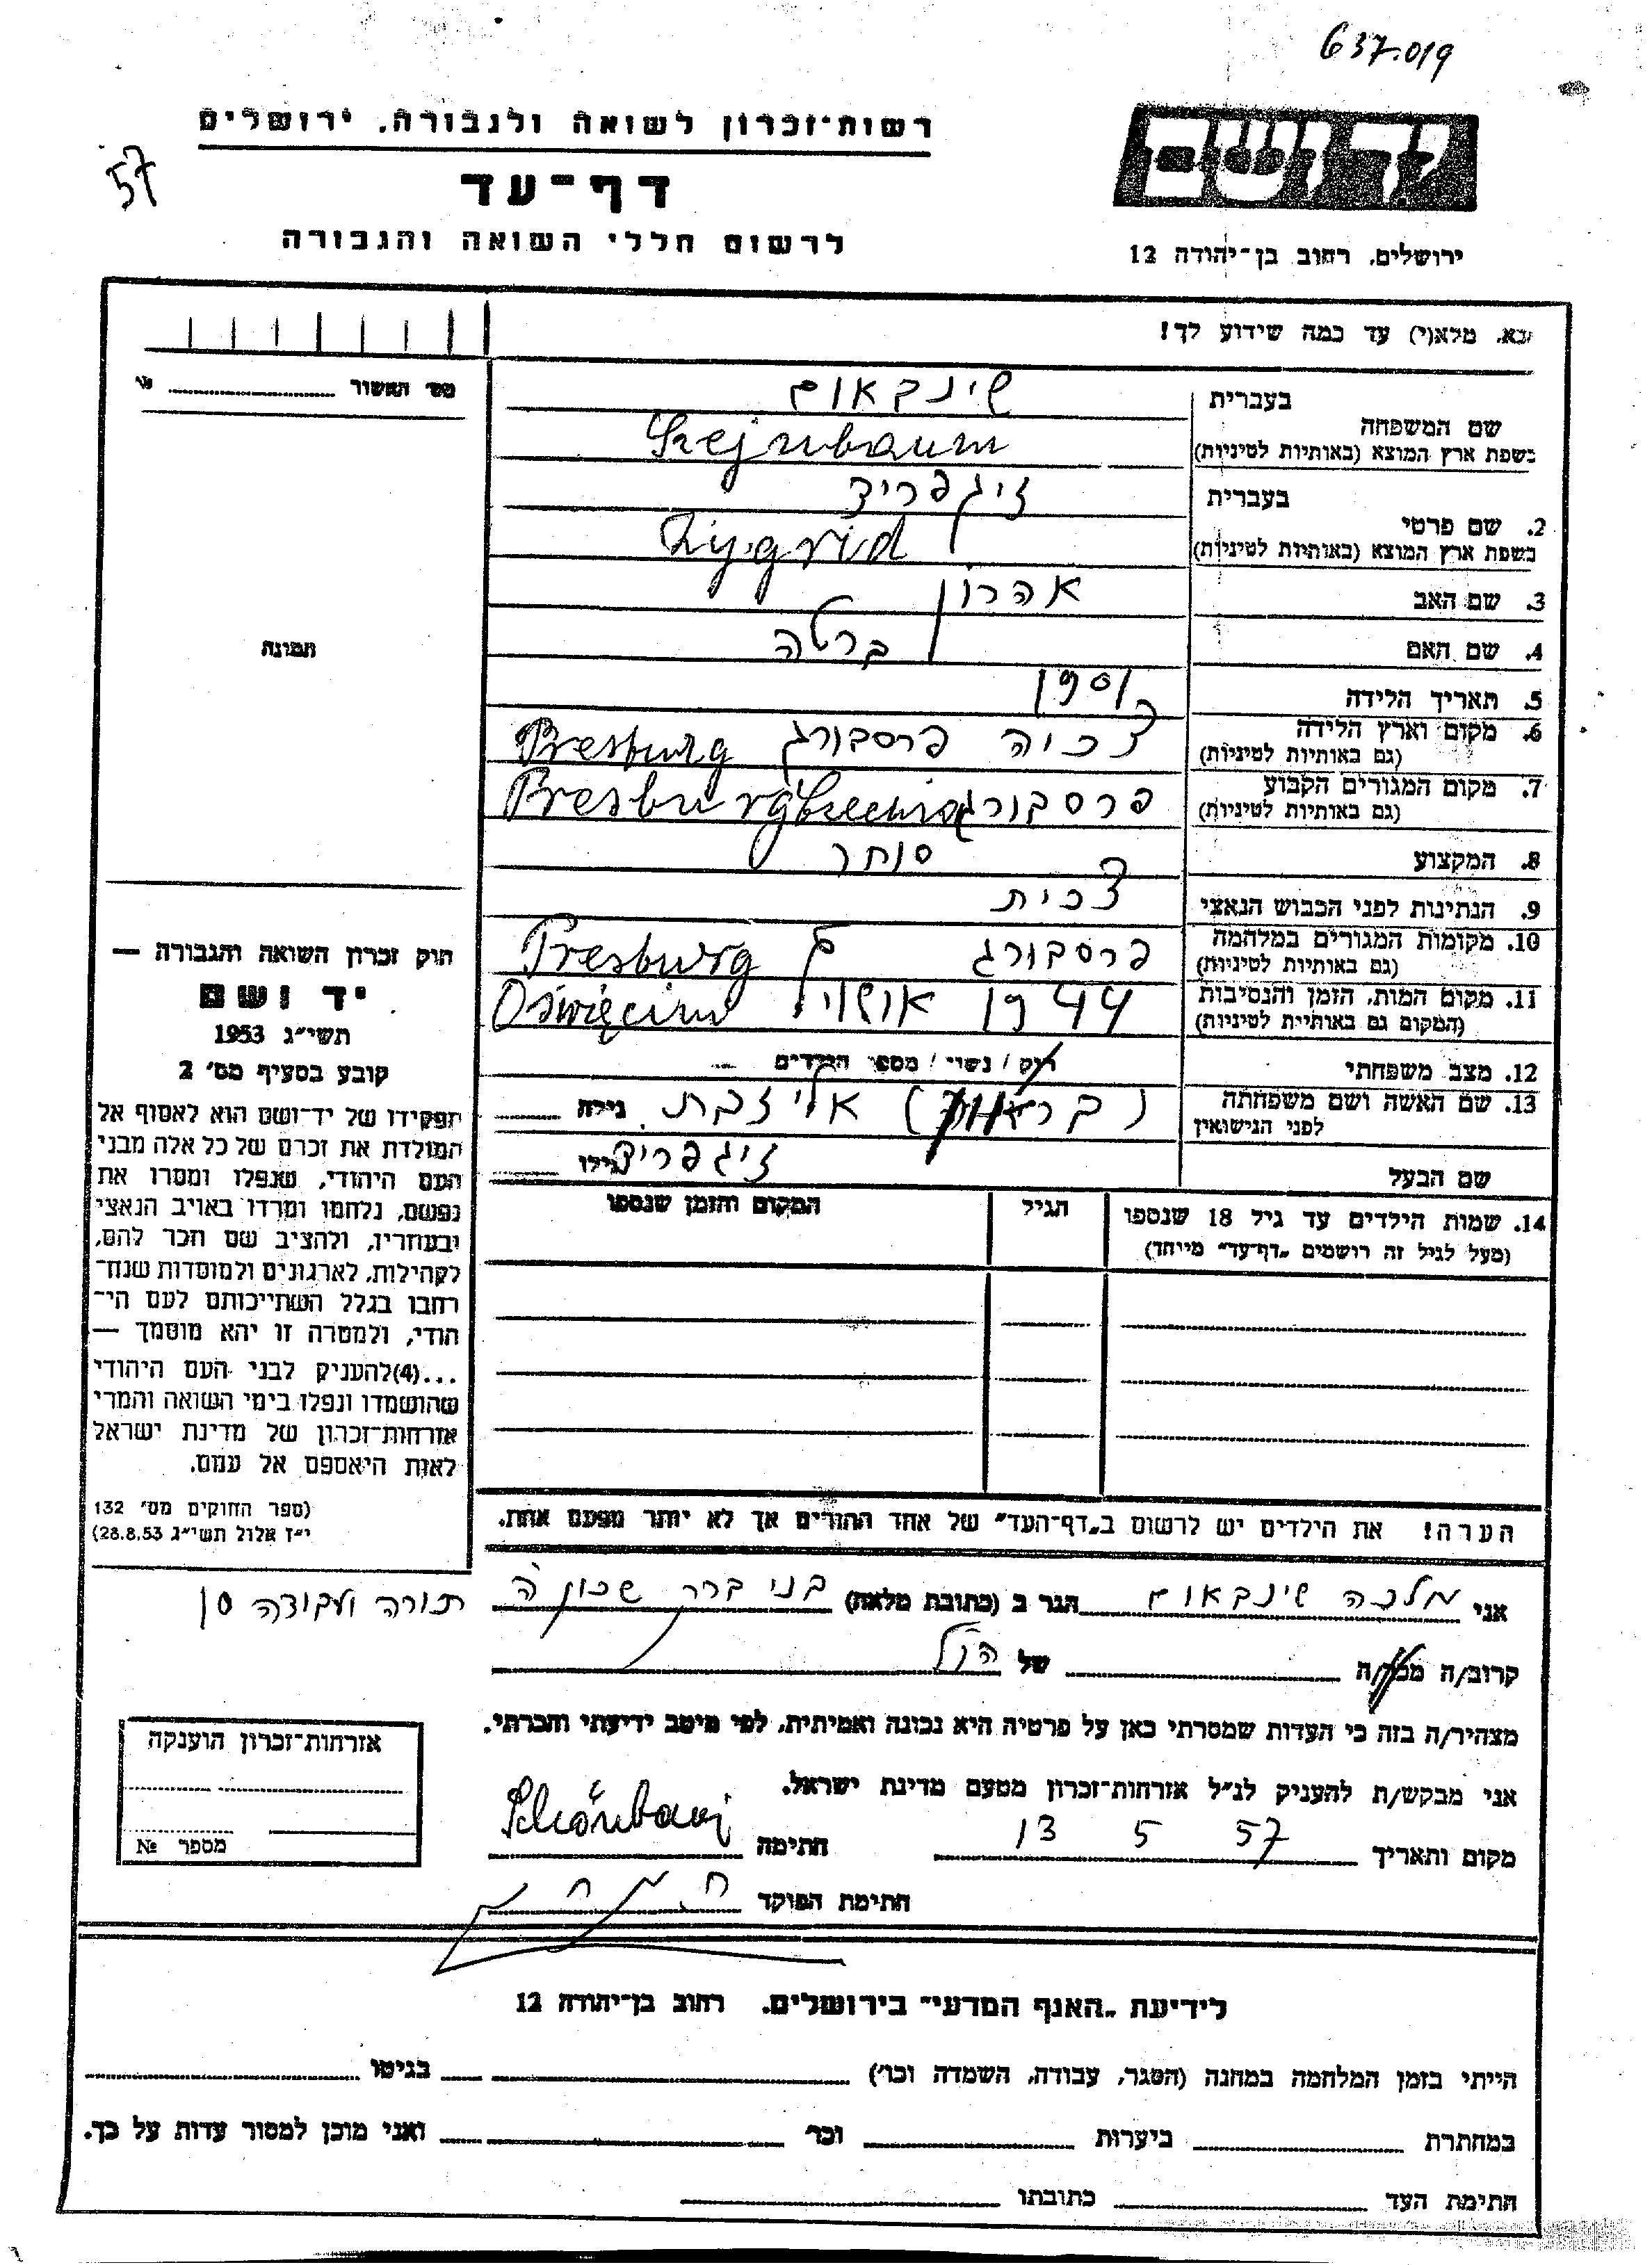 637.019
רשות־זכרון לשואה ולגבורה, ירושלים
57
דף־עד
לרשום חללי השואה והגבורה
יד ושם
ירושלים, רחוב בן־יהודה 12
נא, מלא(י) עד כמה שידוע לך!
מס׳ האשור № 
בעברית שינבאום
שם המשפחה
בשפת ארץ המוצא (באותיות לטיניות) Szejnbaum
בעברית זיגפריד
2. שם פרטי
בשפת ארץ המוצא (באותיות לטיניות) Zygrid
3. שם האב אהרון
4. שם האם ברטה
תמונה
5. תאריך הלידה
6. מקום וארץ הלידה צכיה פרסבורג Presburg
(גם באותיות לטיניות)
7. מקום המגורים הקבוע פרסבורג Presburg
(גם באותיות לטיניות)
8. המקצוע סוחר
9. הנתינות לפני הכבוש הנאצי צכית
10. מקומות המגורים במלחמה פרסבורג Presburg
(גם באותיות לטיניות)
11. מקום המות, הזמן והנסיבות 1944 Oświęcim
(המקום גם באותיות לטיניות)
12. מצב משפחתי רוק / נשוי / מספר הילדים
13. שם האשה ושם משפחתה אליזבת גילה
לפני הנישואין
שם הבעל זיגפריד גילו
14. שמות הילדים עד גיל 18 שנספו הגיל המקום והזמן שנספו
(מעל לגיל זה רושמים „דף־עד” מייחד)
חוק זכרון השואה והגבורה —
יד ושם
תשי״ג 1953
קובע בסעיף מס׳ 2
תפקידו של יד־ושם הוא לאסוף אל
המולדת את זכרם של כל אלה מבני
העם היהודי, שנפלו ומסרו את
נפשם, נלחמו ומרדו באויב הנאצי
ובעוזריו, ולהציב שם וזכר להם,
לקהילות, לארגונים ולמוסדות שנח־
רבו בגלל השתייכותם לעם הי־
הודי, ולמטרה זו יהא מוסמך —
...(4)להעניק לבני העם היהודי
שהושמדו ונפלו בימי השואה והמרי
אזרחות־זכרון של מדינת ישראל
לאות היאספם אל עמם.
(ספר החוקים מס׳ 132
י״ז אלול תשי״ג 28.8.53)
הערה! את הילדים יש לרשום ב„דף־העד” של אחד ההורים אך לא יותר מפעם אחת.
אני מלכה שינבאום הגר ב (כתובת מלאה) בני ברק שכון ה
תורה ועבודה 10
קרוב/ה מכר/ה של הנ״ל
מצהיר/ה בזה כי העדות שמסרתי כאן על פרטיה היא נכונה ואמיתית, לפי מיטב ידיעתי והכרתי.
אני מבקש/ת להעניק לנ״ל אזרחות־זכרון מטעם מדינת ישראל.
מקום ותאריך 13 5 57 חתימה
חתימת הפוקד
אזרחות־זכרון הוענקה
מספר №
לידיעת „האגף המדעי” בירושלים, רחוב בן־יהודה 12
הייתי בזמן המלחמה במחנה (הסגר, עבודה, השמדה וכו׳) בגיטו
במחתרת ביערות וכו׳ ואני מוכן למסור עדות על כך.
חתימת העד כתובתו